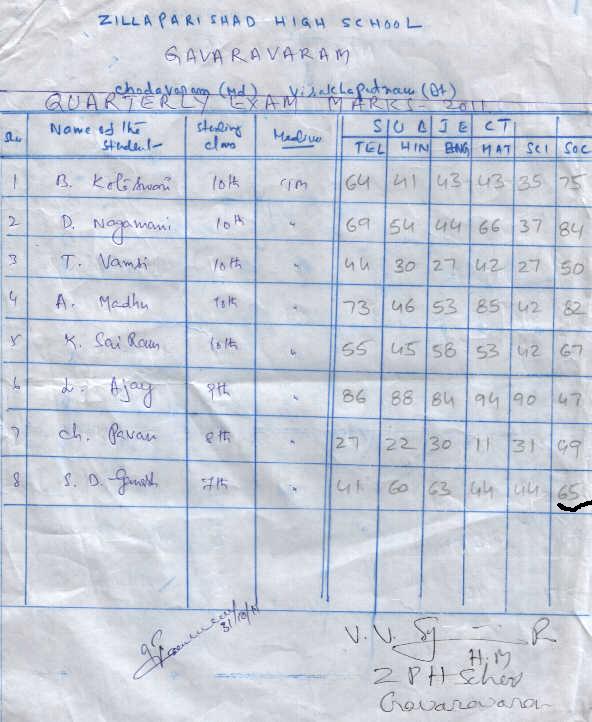 ZILLAPARISHAD HIGH SCHOOL
GAVARAVARAM
Chodavaram (Md) Visakhapatnam (Dt)
QUARTERLY EXAM MARKS - 2011
Name of the Student Studing class Medium SUBJECT
TEL HIN ENG MAT SCI SOC
1 B. 10th 64 41 43 43 35 75
2 D. Nagamani 10th " 69 54 44 66 37 84
3 T. Vamsi 10th " 44 30 27 42 27 50
4 A. Madhu 10th " 73 46 53 85 42 82
5 K. Sai Ram 10th " 55 45 58 53 42 67
6 L. Ajay 9th " 86 88 84 94 90 47
7 Ch. Pavan 8th " 27 22 30 11 31 49
8 S. D. Ganesh 7th " 41 60 63 44 44 65
31/10/11
V. V.
H.M
Z P H School
Gavaravaram